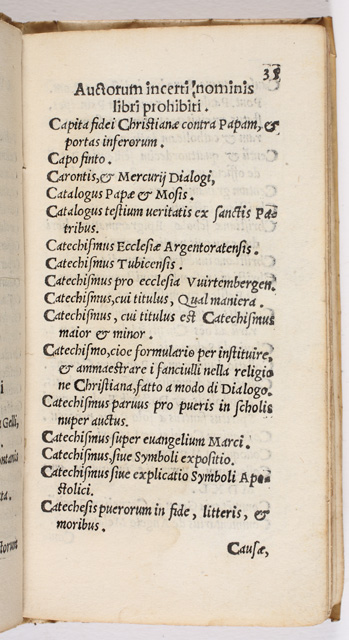 35
Auctorum incerti nominis
libri prohibiti.
Capita fidei Christianæ contra Papam, &
portas inferorum.
Capo finto.
Carontis, & Mercurij Dialogi,
Catalogus Papæ & Mosis.
Catalogus testium ueritatis ex sanctis Pa-
tribus.
Catechismus Ecclesiæ Argentoratensis.
Catechismus Tubicensis.
Catechismus pro ecclesia Vuirtembergen.
Catechismus, cui titulus, Qual maniera.
Catechismus, cui titulus est Catechismus
maior & minor.
Catechismo, cioe formulario per instituire,
& ammaestrare i fanciulli nella religio
ne Christiana, fatto a modo di Dialogo.
Catechismus paruus pro pueris in scholis
nuper auctus.
Catechismus super euangelium Marci.
Catechismus, siue Symboli expositio.
Catechismus siue explicatio Symboli Apo-
stolici.
Catechesis puerorum in fide, litteris, &
moribus.
Causæ,
i
Gelli,
ta.